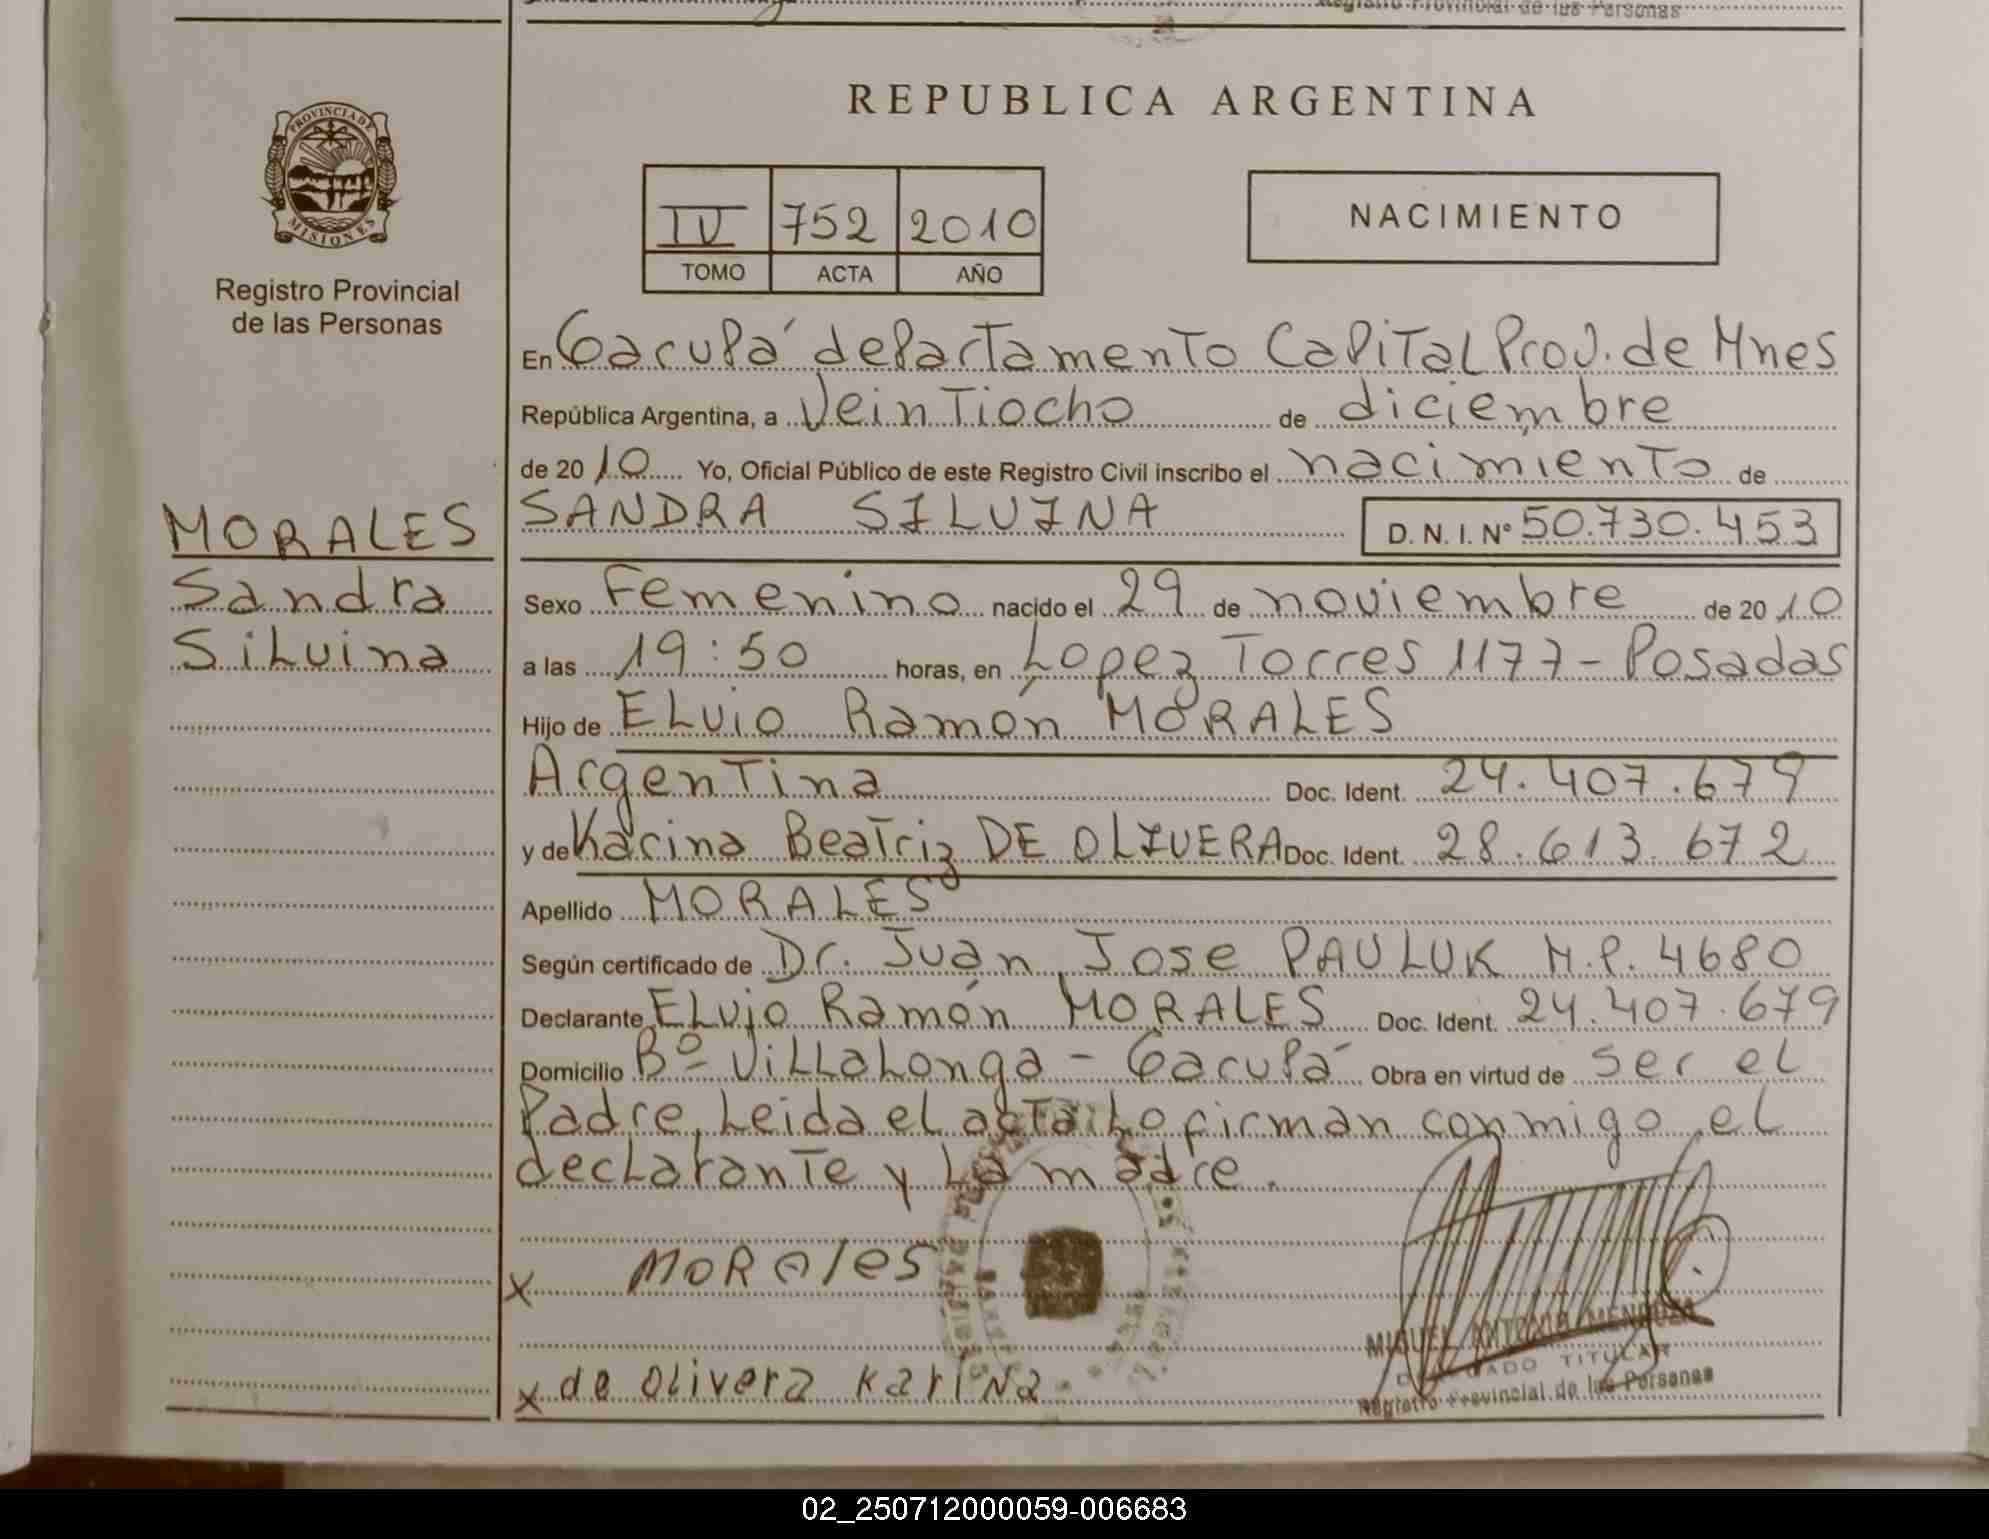 Registro Provincial de las Personas
PROVINCIA DE
MISIONES
Registro Provincial
de las Personas
MORALES
Sandra
SiLvina
REPUBLICA ARGENTINA
IV 752 2010
TOMO ACTA AÑO
NACIMIENTO
En Garupá departamento Capital Prov. de Mnes
República Argentina, a Veintiocho de diciembre
de 20 10 Yo, Oficial Público de este Registro Civil inscribo el nacimiento de
SANDRA SILVINA D. N. I. Nº 50.730.453
Sexo Femenino nacido el 29 de noviembre de 20 10
a las 19:50 horas, en Lopez Torres 1177 - Posadas
Hijo de ELvio Ramón MORALES
Argentina Doc. Ident. 24.407.679
y de Karina Beatriz DE OLIVERA Doc. Ident. 28.613.672
Apellido MORALES
Según certificado de Dr. Juan Jose PAULUK M.P. 4680
Declarante ELvio Ramón MORALES Doc. Ident. 24.407.679
Domicilio Bº ViLLaLonga - Garupá Obra en virtud de ser el
Padre, Leida el acta Lo firman conmigo el
declarante y La madre.
X MORAles
X de Olivera Karina
MIGUEL ANTONIO MENDOZA
DELEGADO TITULAR
Registro Provincial de las Personas
02_250712000059-006683